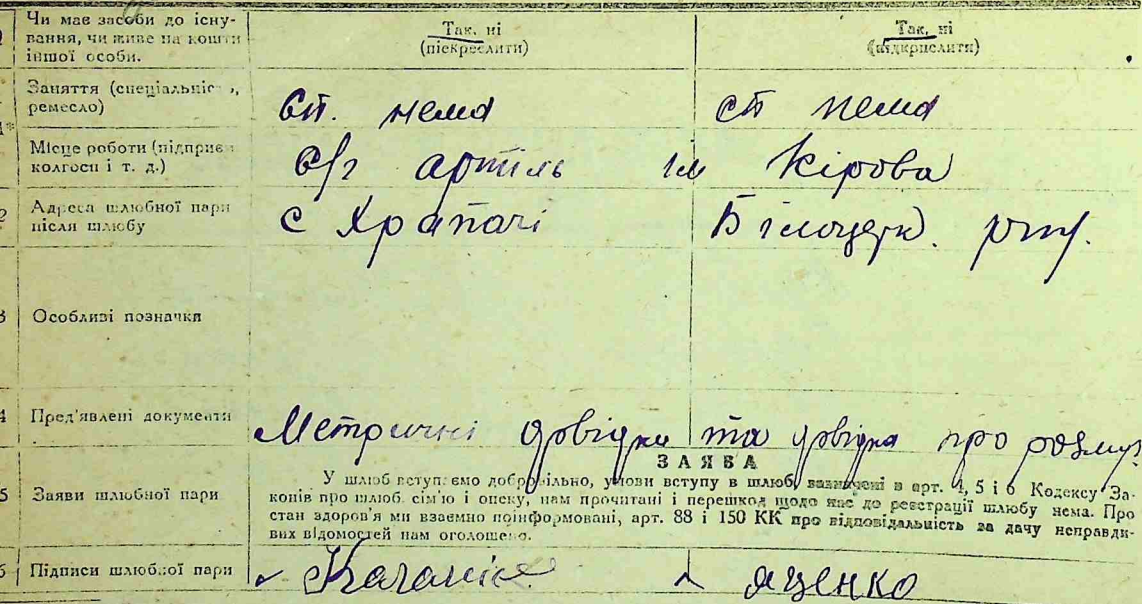 Чи має засоби до існу-
вання, чи живе на кошти
іншої особи.
Так, ні
(піекреслити)
Так, ні
(підкрислити)
Заняття (спеціальніс
ремесло)
сп. нема
сп нема
Місце роботи (підприє
колгосп і т. д.)
с/г артіль ім Кірова
Адреса шлюбної пари
після шлюбу
с Храпачі
Білоцерк.
3 Особливі позначки
4 Пред'явлені документи
Метричні довідки та довідка про
ЗАЯВА
5 Заяви шлюбної пари
У шлюб вступаємо добровільно, умови вступу в шлюб, зазначені в арт. 4, 5 і 6 Кодексу За-
конів про шлюб, сім'ю і опеку, нам прочитані і перешкод щодо нас до реєстрації шлюбу нема. Про
стан здоров'я ми взаємно поінформовані, арт. 88 і 150 КК про відповідальність за дачу неправди-
вих відомостей нам оголошено.
6 Підписи шлюбної пари
Яценко